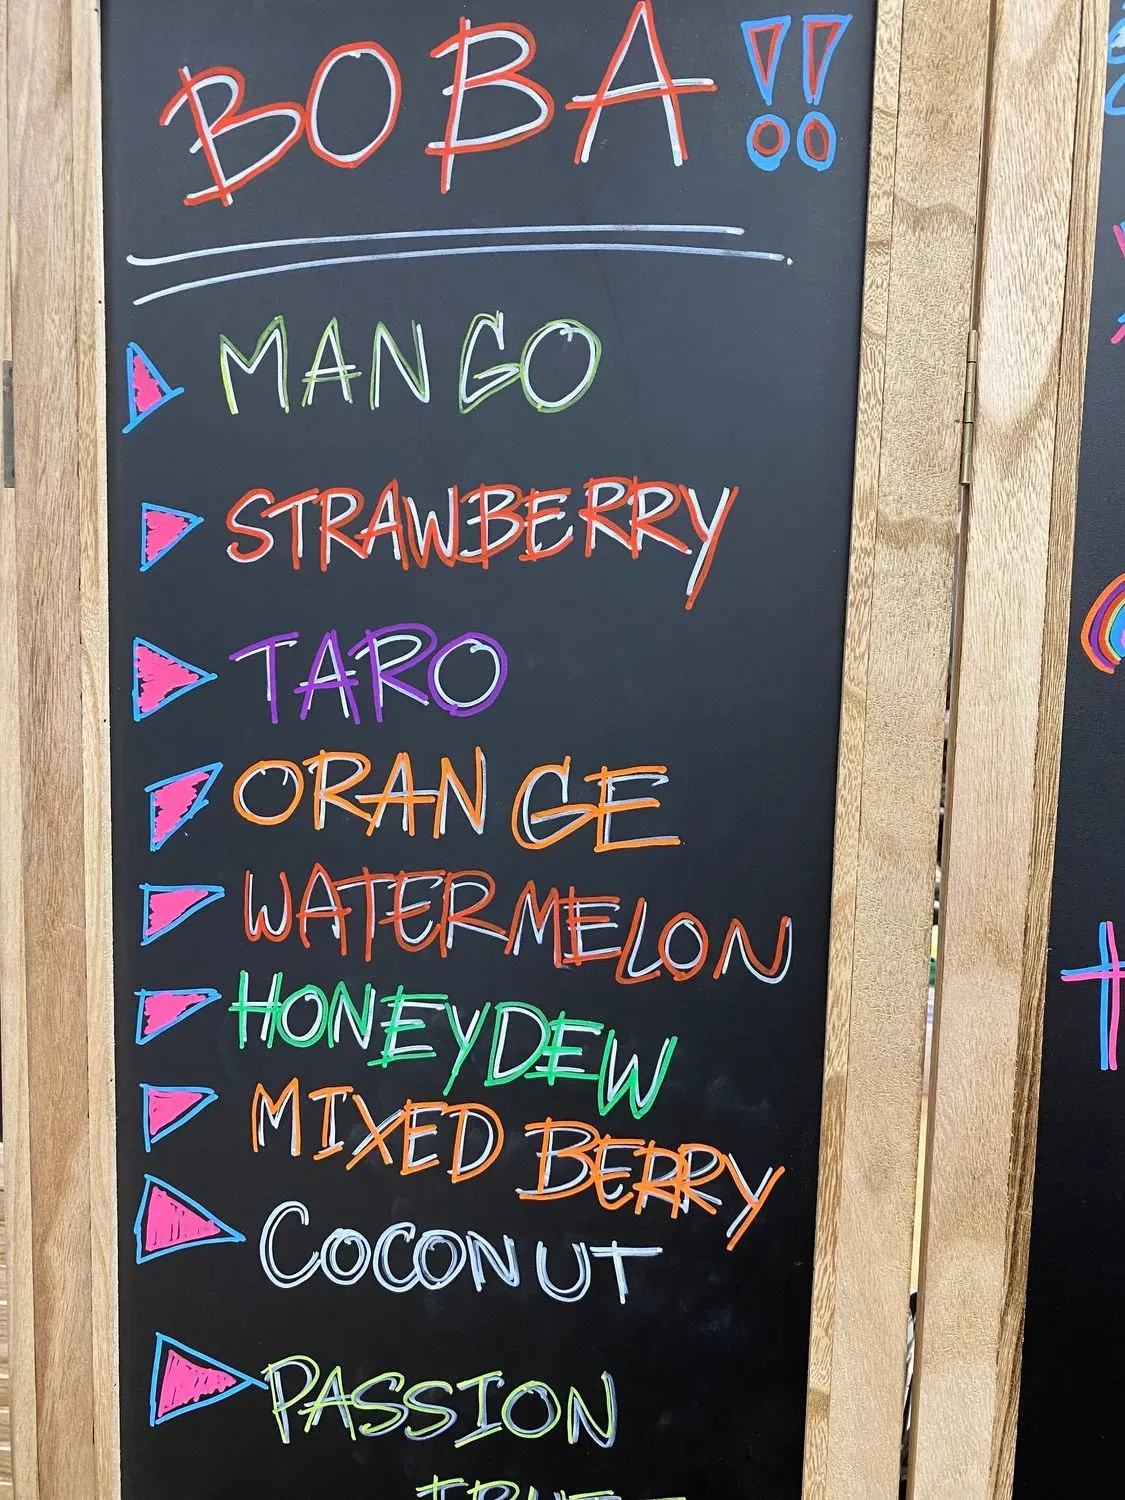 BOBA!!
MANGO
STRAWBERRY
TARO
ORANGE
WATERMELON
HONEYDEW
MIXED BERRY
COCONUT
PASSION